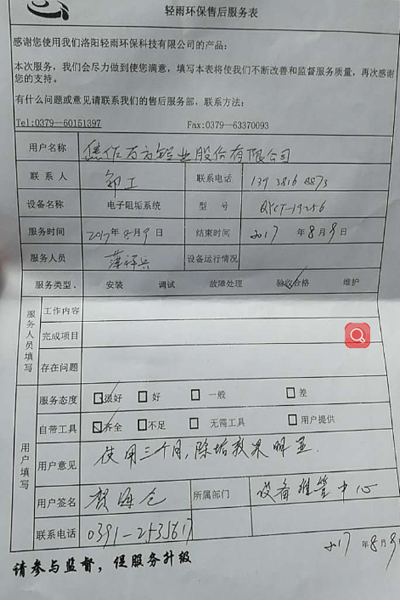 轻雨环保售后服务表
感谢您使用我们洛阳轻雨环保科技有限公司的产品:
本次服务,我们会尽力做到使您满意,填写本表将使我们不断改善和监督服务质量,再次感谢
您的支持。
有什么问题或意见请联系我们的售后服务部,联系方法:
Tel:0379-60151397 Fax:0379-63370093
用户名称 焦作万方铝业股份有限公司
联系人 联系电话
设备名称 电子阻垢系统 型号 QYCT-14256
服务时间 2017年8月9日 结束时间 2017 8月9日
服务人员 设备运行情况
服务类型: 安装 调试 故障处理 验收合格 维护
服务人员填写
工作内容
完成项目
存在问题
用户填写
服务态度 很好 好 一般 差
自带工具 齐全 不足 无需工具 用户提供
用户意见 使用三个月,除垢效果明显.
用户签名 所属部门 设备维管中心
联系电话 0391-2535617
2017年8月9日
请参与监督,促服务升级